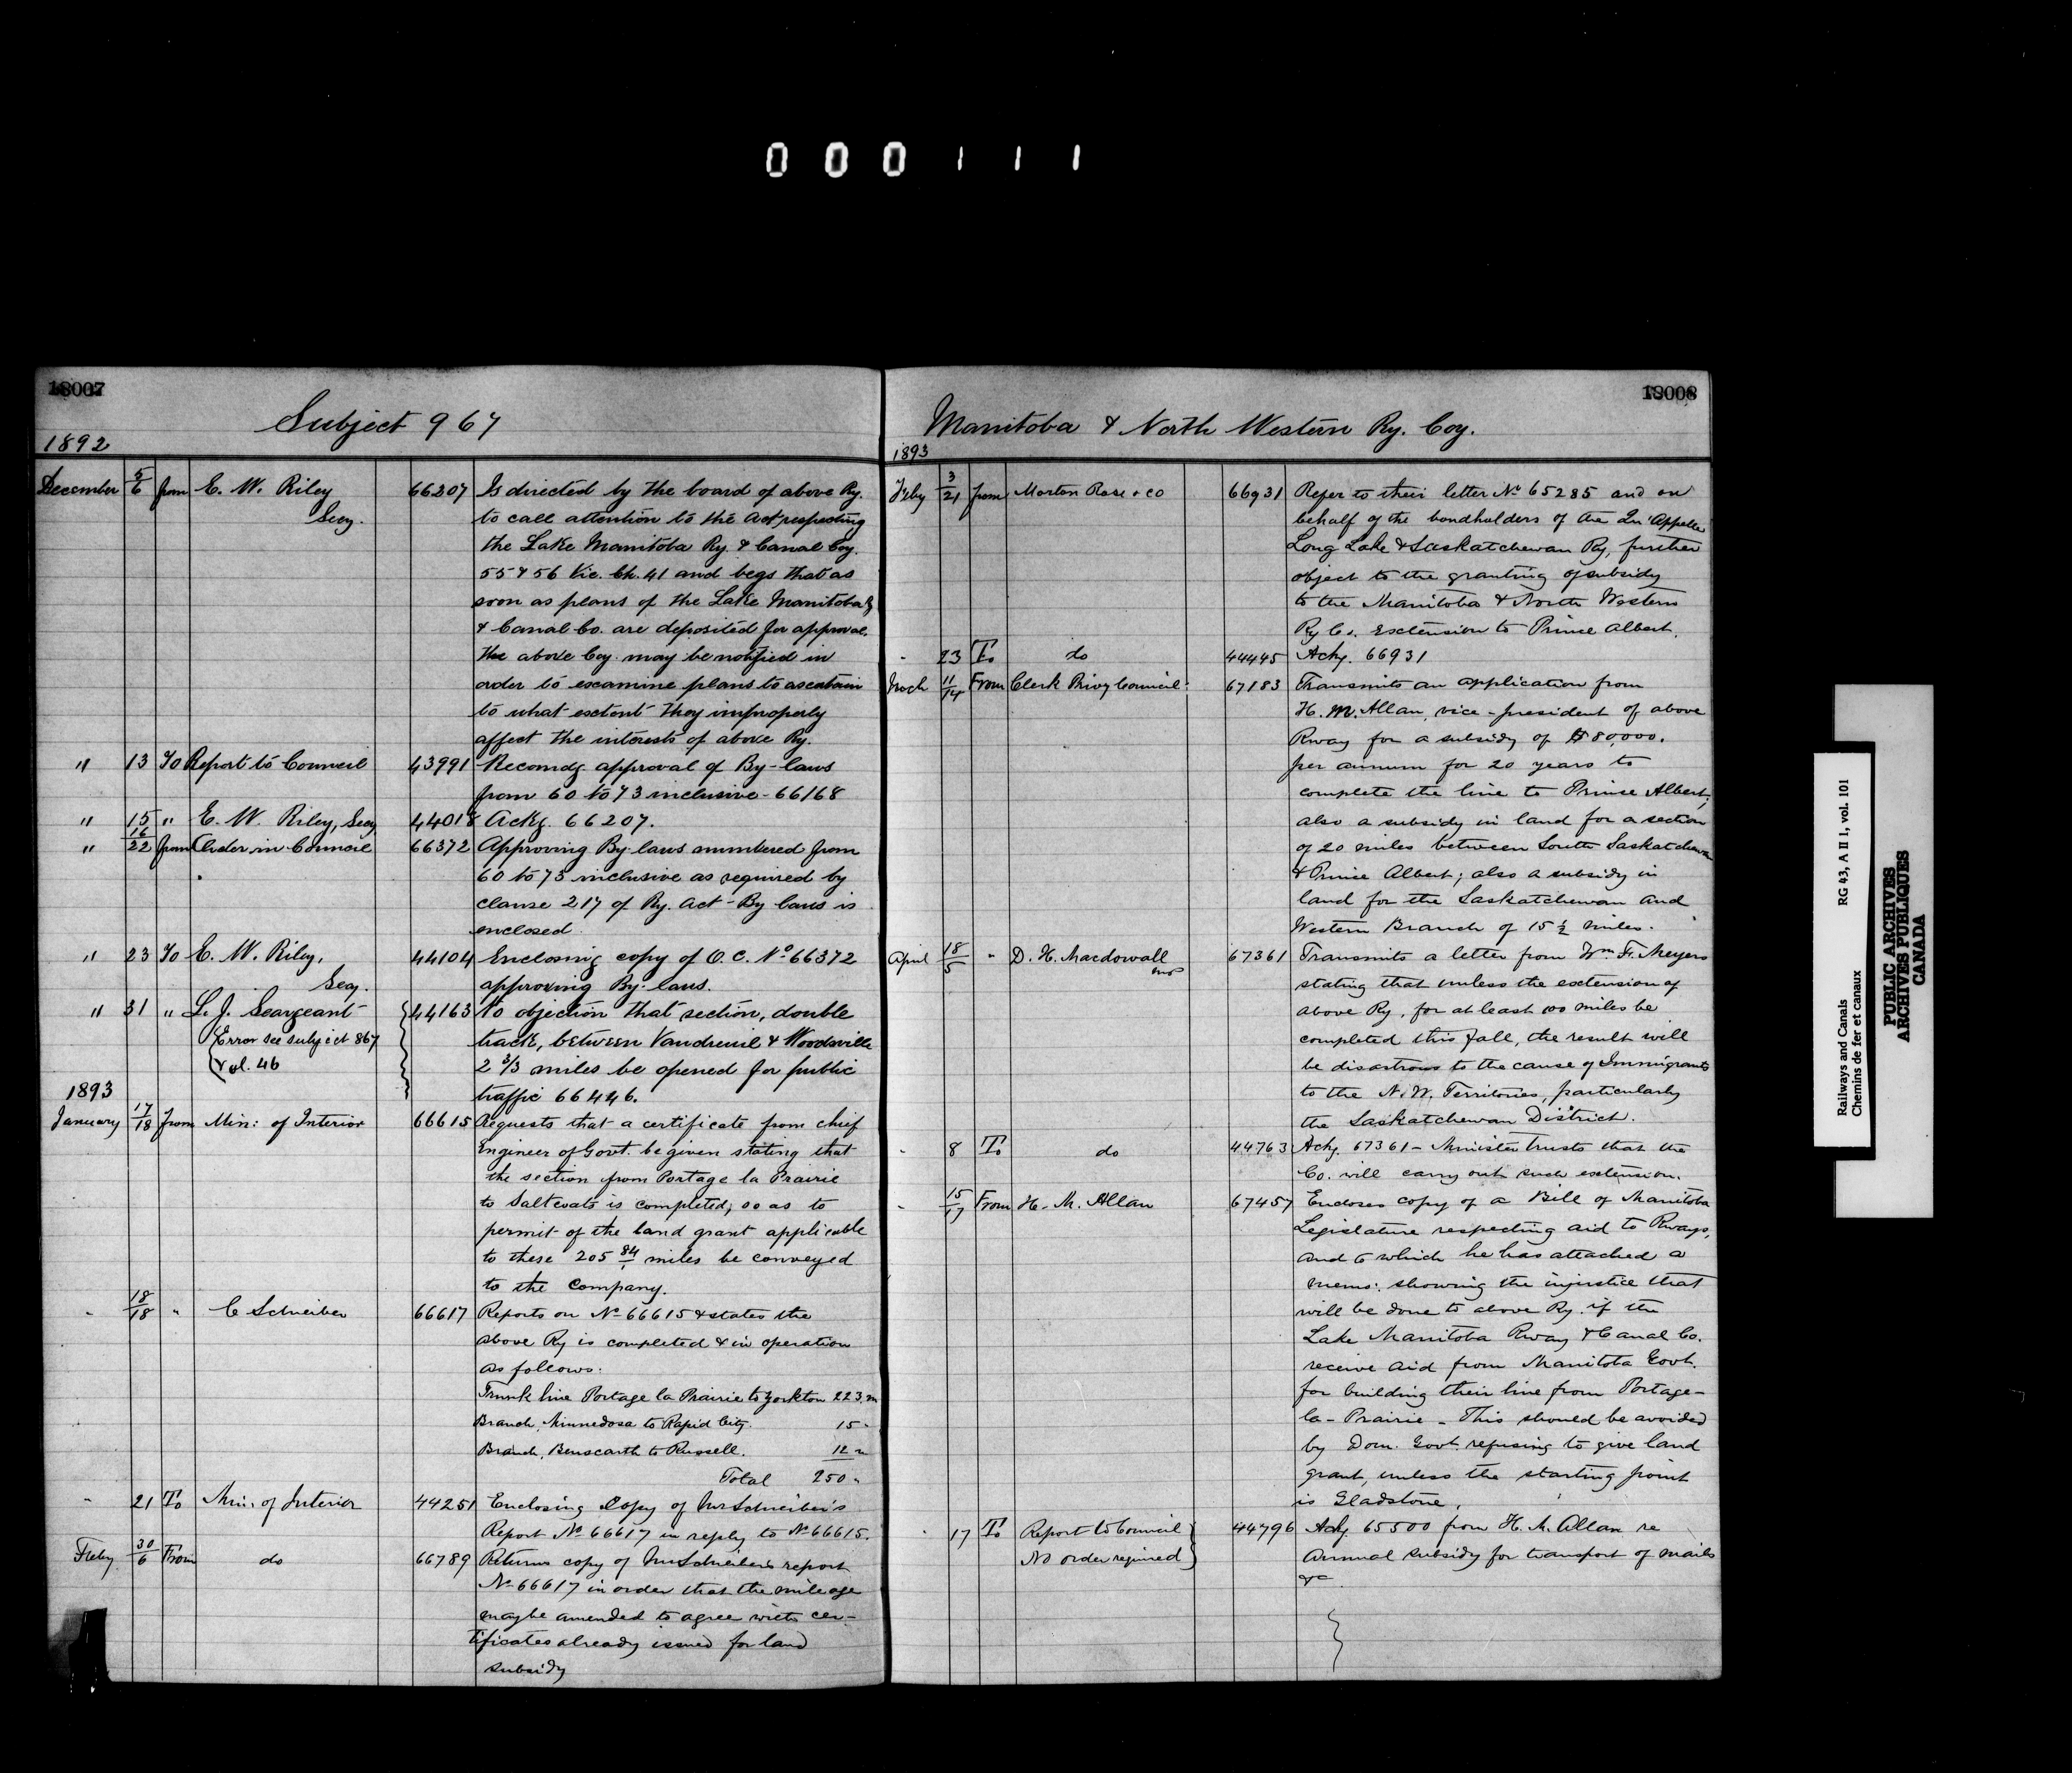 000111
18007
Subject 967
1892
December 5/6 from E. W. Riley 66207 Is directed by the board of above Ry.
Secy. to call attention to the Act respecting
the Lake Manitoba Ry. & Canal Coy.
55 & 56 Vic. Ch. 41 and begs that as
soon as plans of the Lake Manitoba Ry
& Canal Co. are deposited for approval.
the above Coy. may be notified in
order to examine plans to ascertain
to what extent they improperly
affect the interests of above Ry.
" 13 To Report to Council 43991 Recomdg. approval of By-laws
from 60 to 73 inclusive - 66168
" 15 " E. W. Riley, Secy 44018 Ackg. 66207.
" 16/22 from Order in Council 66372 Approving By-laws numbered from
60 to 73 inclusive as required by
clause 217 of Ry. Act - By laws is
enclosed
" 23 To E. W. Riley, 44104 Enclosing copy of O. C. No 66372
Secy. approving By-laws.
" 31 " L. J. Seargeant 44163 No objection that section, double
Error see subject 867 track, between Vaudreuil & Woodsville
vol. 46 2 2/3 miles be opened for public
1893 traffic 66446.
January 17/18 from Min: of Interior 66615 Requests that a certificate from chief
Engineer of Govt. be given stating that
the section from Portage la Prairie
to Saltcoats is completed, so as to
permit of the land grant applicable
to these 205 84 miles be conveyed
to the Company.
" 18/18 " C Schreiber 66617 Reports on No 66615 & states the
above Ry is completed & in operation
as follows:
Trunk line Portage la Prairie to Yorkton 223 m
Branch, Minnedosa to Rapid City. 15 "
Branch, Binscarth to Russell. 12 "
Total 250 "
" 21 To Min: of Interior 44251 Enclosing Copy of Mr Schreiber's
Report No 66617 in reply to No 66615.
Feby 30/6 From do 66789 Returns copy of Mr Schreiber's report
No 66617 in order that the mileage
may be amended to agree with cer-
tificates already issued for land
subsidy
18008
Manitoba & North Western Ry. Coy.
1893
Feby 3/21 from Morton Rose & co 66931 Refer to their letter No 65285 and on
behalf of the bondholders of the Qu'Appelle
Long Lake & Saskatchewan Ry, further
object to the granting of subsidy
to the Manitoba & North Western
Ry Co. Extension to Prince Albert.
" 23 To do 44445 Ackg. 66931
Mach 11/14 From Clerk Privy Council: 67183 Transmits an application from
H. M. Allan, vice-president of above
Rway for a subsidy of $80,000.
per annum for 20 years to
complete the line to Prince Albert;
also a subsidy in land for a section
of 20 miles between South Saskatchewan
& Prince Albert; also a subsidy in
land for the Saskatchewan and
Western Branch of 15 1/2 miles.
April 18/5 " D. H. Macdowall 67361 Transmits a letter from Wm F. Meyers
stating that unless the extension of
above Ry, for at least 100 miles be
completed this fall, the result will
be disastrous to the cause of Immigrants
to the N. W. Territories, particularly
the Saskatchewan District.
" 8 To do 44763 Ackg. 67361 - Minister trusts that the
Co. will carry out such extension.
" 15/17 From H. M. Allan 67457 Encloses copy of a Bill of Manitoba
Legislature respecting aid to Rways,
and to which he has attached a
memo: showing the injustice that
will be done to above Ry. if the
Lake Manitoba Rway & Canal Co.
receive aid from Manitoba Govt.
for building their line from Portage-
la-Prairie - This should be avoided
by Dom. Govt. refusing to give land
grant, unless the starting point
is Gladstone.
" 17 To Report to Council 44796 Ackg 65500 from H. M. Allan re
No order required annual subsidy for transport of mails
&c
Railways and Canals RG 43, A II 1, vol. 101
Chemins de fer et canaux
PUBLIC ARCHIVES
ARCHIVES PUBLIQUES
CANADA